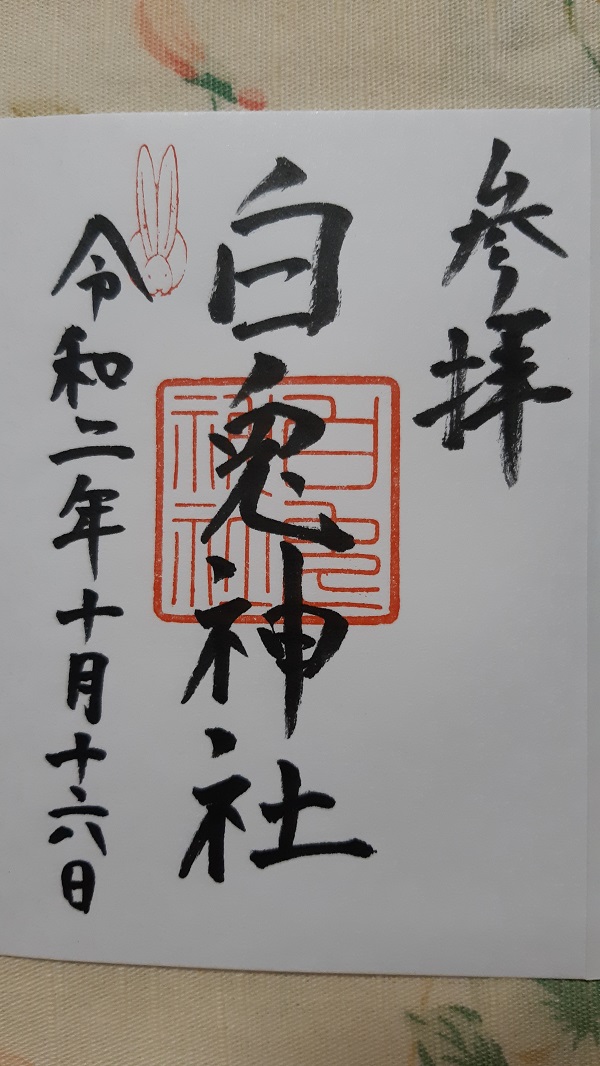 参拝
白兎神社
白兎神社
令和二年十月十六日